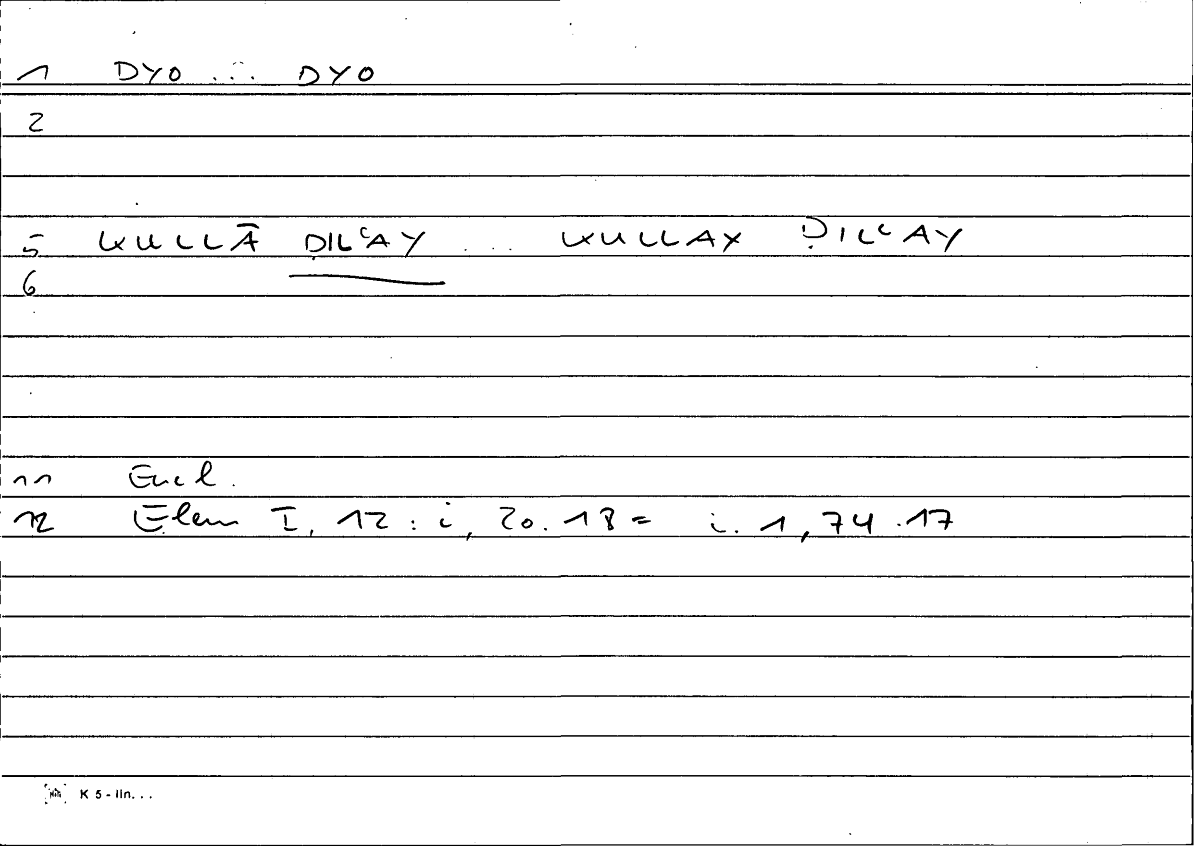 1 DYO ... DYO
2
5 KULLĀ ḌILʿAY ... KULLAY ḌILʿAY
6
11 Eucl.
12 Elem I, 12 : i, 20.18 = i. 1, 74.17
K 5 - lin...